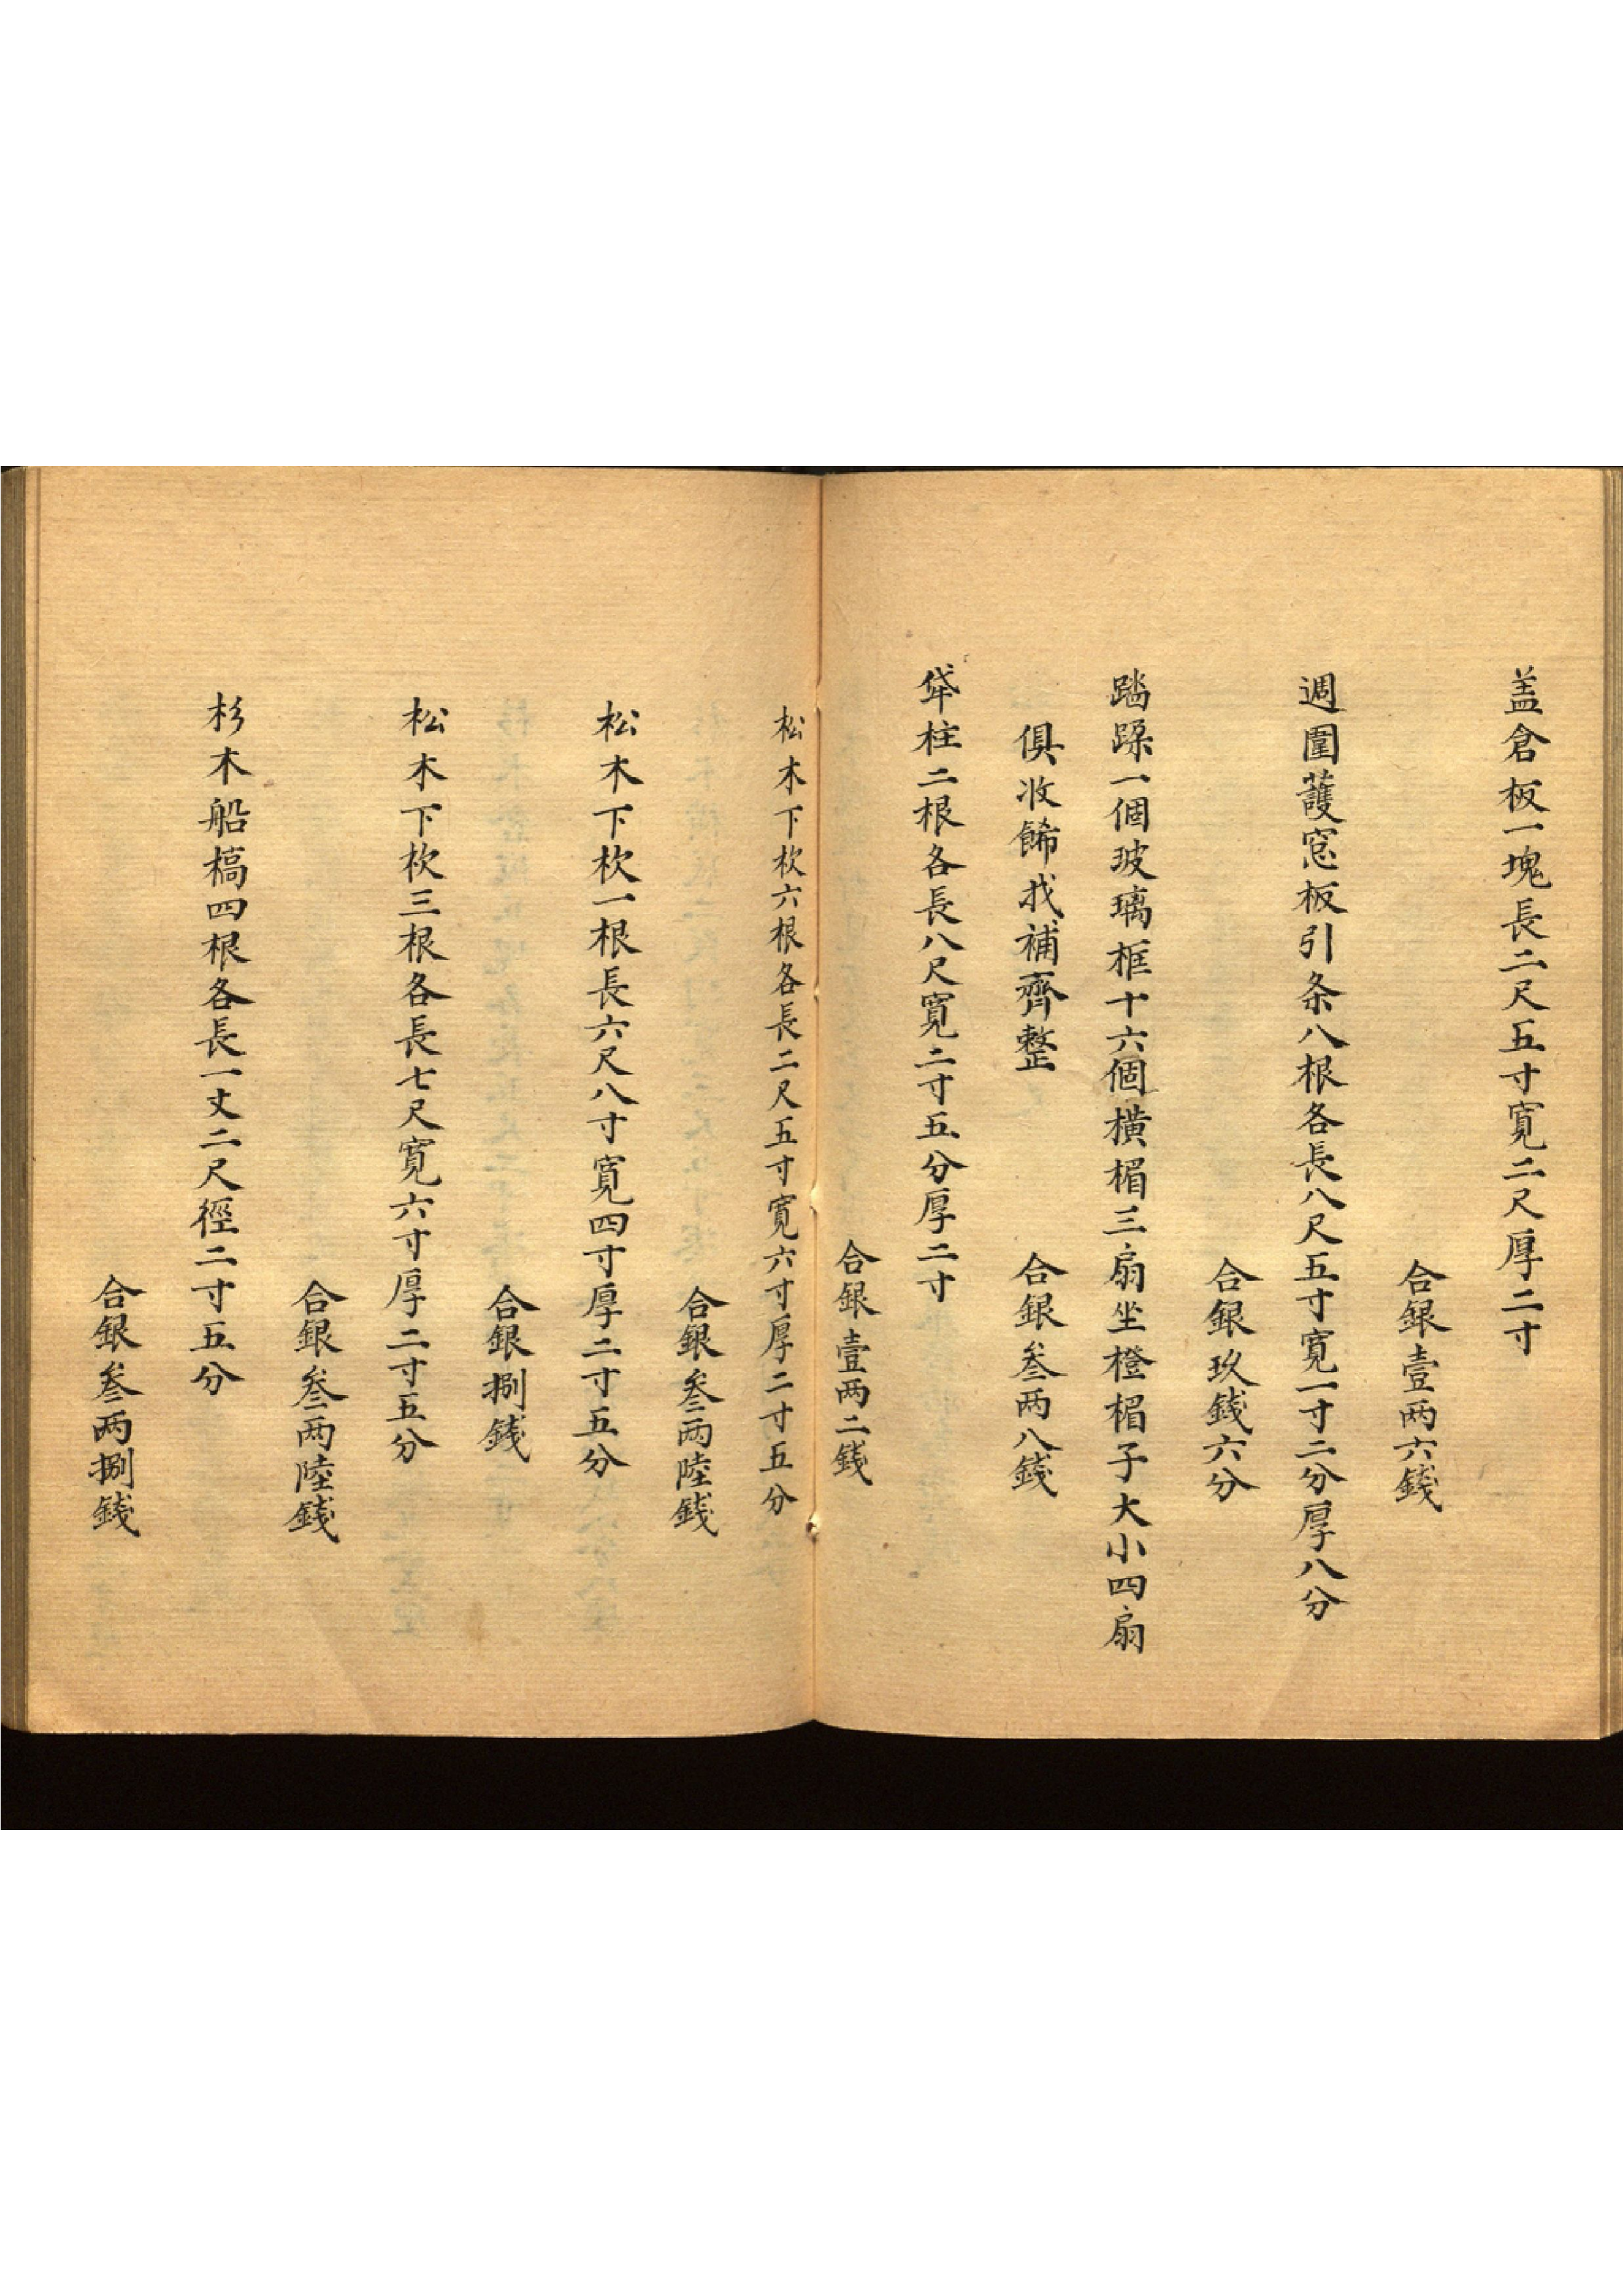 盖倉板一塊長二尺五寸寬二尺厚二寸
合銀壹两六錢
週圍護窓板引条八根各長八尺五寸寬一寸二分厚八分
合銀玖錢六分
踏跺一個玻璃框十六個橫楣三扇坐橙楣子大小四扇
俱收餙找補齊整
合銀叁两八錢
柱二根各長八尺寬二寸五分厚二寸
合銀壹两二錢
松木下杴六根各長二尺五寸寬六寸厚二寸五分
合銀叁两陸錢
松木下杴一根長六尺八寸寬四寸厚二寸五分
合銀捌錢
松木下杴三根各長七尺寬六寸厚二寸五分
合銀叁两陸錢
杉木船槁四根各長一丈二尺徑二寸五分
合銀叁两捌錢